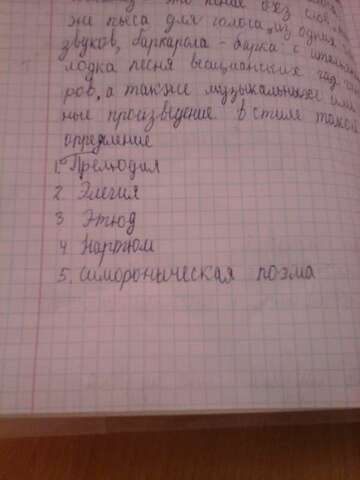 это пение без слов
же пьеса для голоса, из одних
звуков, баркарола - барка с
лодка песня веницианских
ров, а также музыкальные
ные произведение в стиле такой
определение
1. Прелюдия
2 Элегия
3 Этюд
4 Нартюм
5. Симфоническая поэма